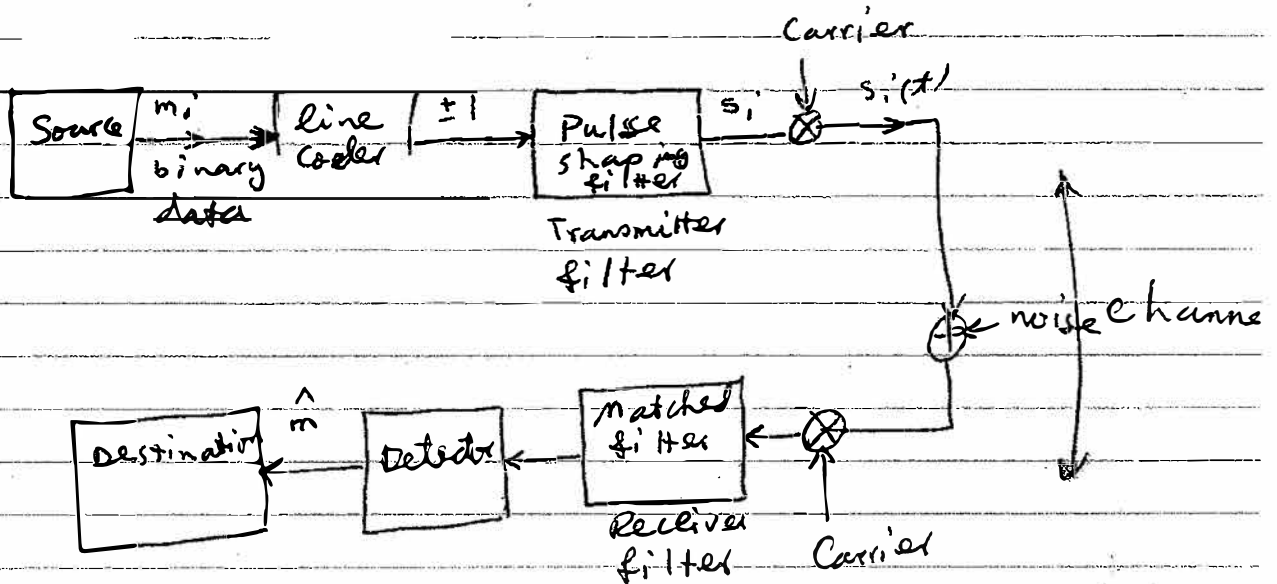 Carrier
Source
m_i
binary
data
line
coder
± 1
Pulse
shaping
filter
Transmitter
filter
s_i
s_i(t)
noise
Channe
Destination
m̂
Detector
Matched
filter
Receiver
filter
Carrier